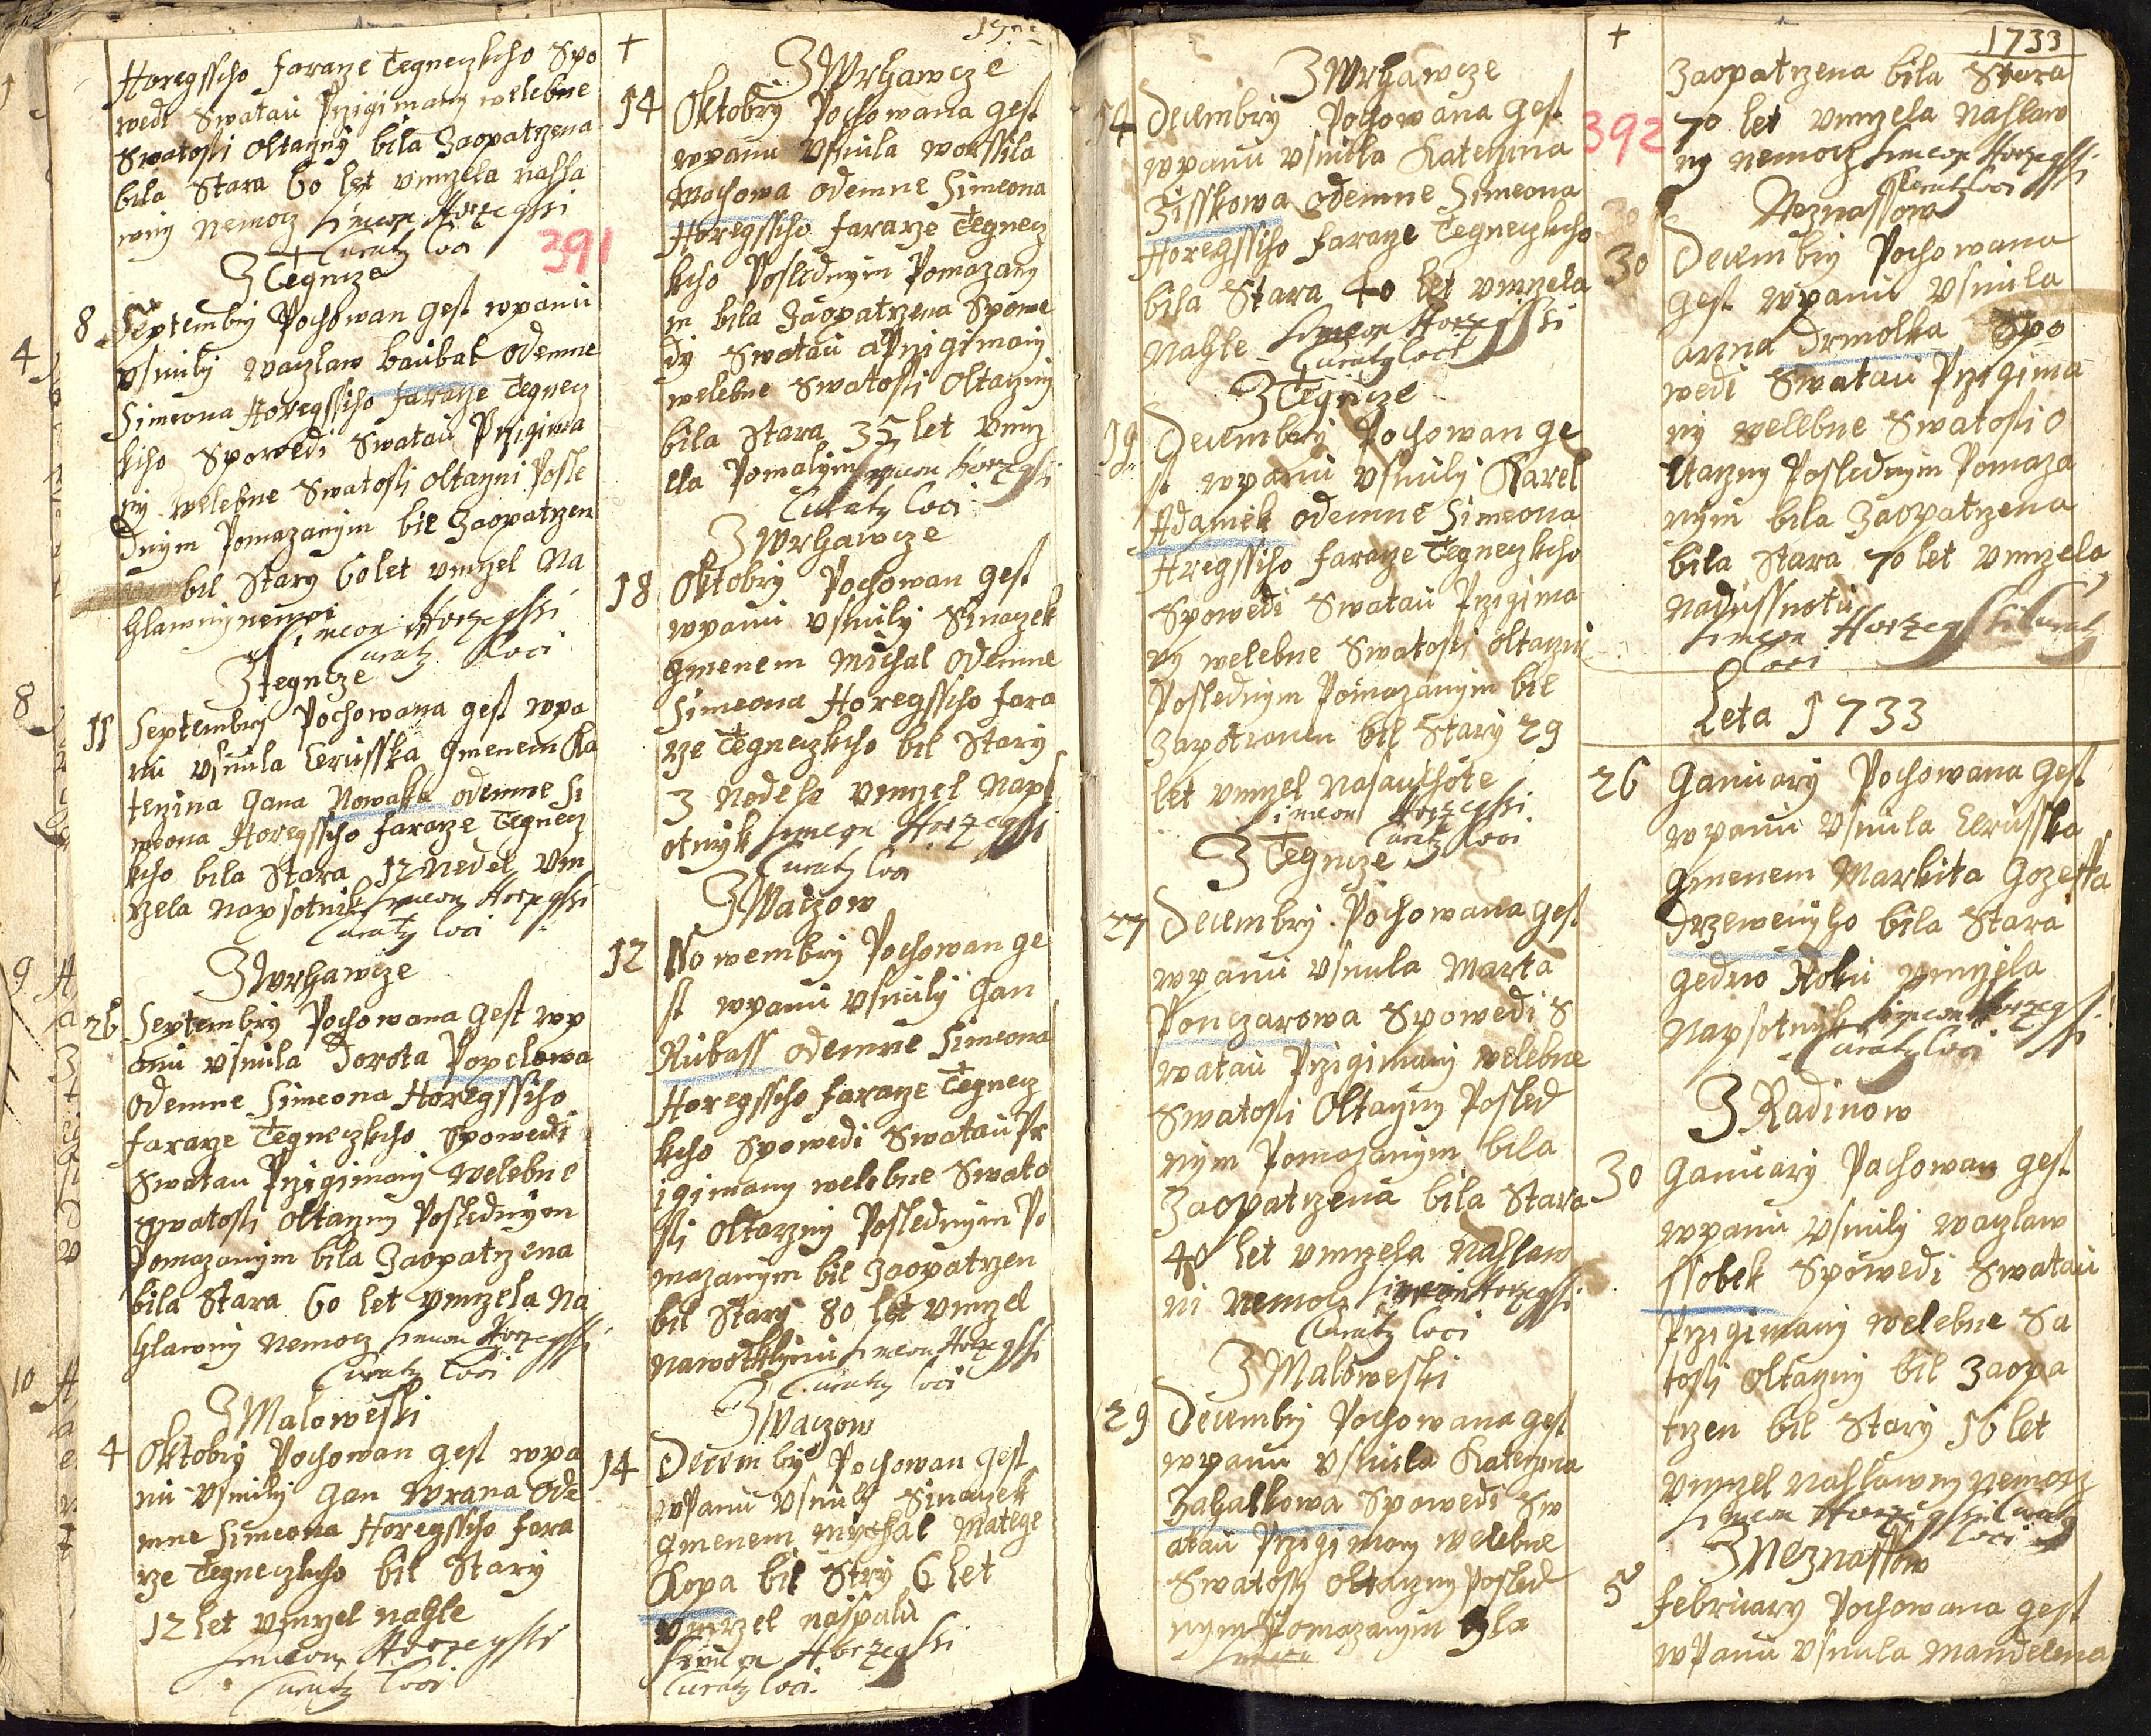 Horegssiho faraze Tegneczkho Spo
wedi Swatau Przigimany welebne
Swatosti oltarzny bila Zaopatrzena
bila Stara 60 let vmrzela nahla
wny nemocz Simeon Horzegssi
Curatq Loci
391
Z Tegncze
8 Septembry Pochowan gest wpanu
vsnuly waczlaw baubal odemne
Simeona Horegssiho faraze Tegnecz
kho Spowedi Swatau Przigima
ny welebne Swatosti oltarzni Posle
dnym Pomazanym bil Zaopatrzen
bil Stary 60 let vmrzel Na
hlawny nemoci
Simeon Horzegssi
Curatq Loci
Z Tegncze
11 Septembry Pochowana gest wpa
nu vsnula Cerusska gmenem Ka
terzina gana Nowaka odemne Si
meona Horegssiho faraze Tegnecz
kho bila Stara 12 Nedel vm
rzela napsotnik Simeon Horzegssi
Curatq Loci
Z wrhawcze
26 Septembry Pochowana gest wp
anu vsnula Dorota Popelowa
odemne Simeona Horegssiho
faraze Tegneczkho Spowedi
Swatau Przigimany Welebne
Swatosti oltarzny Poslednym
Pomazanym bila Zaopatrzena
bila Stara 60 let vmrzela Na
hlawny nemocz Simeon Horzegssi
Curatq Loci
Z Maloweski
4 Oktobry Pochowan gest wpa
nu vsnuly gan Wrana Ode
mne Simeona Horegssiho fara
rze Tegneczkho bil Stary
12 let vmrzel nahle
Simeon Horzegssi
Curatq Loci
+
Z Wrhawcze
14 Oktobry Pochowana gest
wpanu vsnula worssila
Machowa odemne Simeona
Horegssiho fararze Tegnecz
kho Poslednym Pomazany
m bila Zaopatrzena Spowe
dy Swatau a Przigimany
welebne Swatosti Oltarzny
bila Stara 35 let vmrz
ela Pomalym Simeon Horzegssi
Curatq Loci
Z Wrhawcze
18 Oktobry Pochowan gest
wpanu vsnuly Sinaczek
gmenem Michal Odemne
Simeona Horegssiho fara
rze Tegneczkho bil Stary
3 Nedele vmrzel Naps
otnyk Simeon Horzegssi
Curatq Loci
Z Waczow
12 Nowembry Pochowan ge
st wpanu vsnuly gan
Rubass odemne Simeona
Horegssiho fararze Tegnecz
kho Spowedi Swatau Pr
zigimany welebne Swato
sti oltarzny Poslednym Po
mazanym bil Zaopatrzen
bil Stary 80 let vmrzel
Simeon Horzegssi
Curatq Loci
Z Waczow
14 Decembry Pochowan gest
wpanu vsnuly Sinaczek
gmenem mychal Matege
Kopa bil Stry 6 let
vmrzel naspalu
Simeon Horzegssi
Curatq Loci
Z Wrhawcze
14 Decembry Pochowana gest
wpanu vsnula Katerzina
Zisskowa odemne Simeona
Horegssiho faraze Tegneczkho
bila Stara 40 let vmrzela
Nahle Simeon Horzegssi
Curatq Loci
Z Tegncze
19 Decembry Pochowan ge
st wpanu vsnuly Karel
Adamek odemne Simeona
Hregssiho faraze Tegneczkho
Spowedi Swatau Przigima
ny welebne Swatosti oltarzni
Poslednym Pomazanym bil
Zapotranen bil Stary 29
let vmrzel Nasauchote
Simeon Horzegssi
Curatq Loci
Z Tegncze
27 Decembry Pochowana gest
wpanu vsnula Marta
Ponczarowa Spowedi S
watau Przigimany welebne
Swatosti Oltarzny Posled
nym Pomazanym bila
Zaopatrzena bila Stara
40 let vmrzela Nahlaw
ni nemocz Simeon Horzegssi
Curatq Loci
Z Maloweski
29 Decembry Pochowana gest
wpanu vsnula Katerzina
Zahalkowa Spowedi Sw
atau Przigimany Welebne
Swatosti oltarzny Posled
nym Pomazanym bla
+
1733
392
Zaopatrzena bila Stara
70 let vmrzela Nahlaw
ny nemocz Simeon Horzegssi
Curatq Loci
Neznassow
30 Decembry Pochowana
gest wpanu vsnula
anna drmolka Spo
wedi Swatau Przigima
ny welebne Swatosti O
ltarzny Poslednym Pomaza
nym bila Zaopatrzena
bila Stara 70 let vmrzela
Nadussnotu
Simeon Horzegssi Curatq
Loci
Leta 1733
26 Ganuary Pochowana gest
wpanu vsnula Cerusska
gmenem Markita Gozeffa
drzewenyho bila Stara
gedno Roku vmrzela
Napsotnyk Simeon Horzegs
si
Curatq Loci
Z Radinow
30 Ganuary Pachowan gest
wpanu vsnuly waczlaw
ssobek Spowedi Swatau
Przigimany welebne Sa
tosti oltarzny bil Zaopa
trzen bil Stary 16 let
vmrzel Nahlawny nemocz
Simeon Horzegssi Curatq
Loci
Z Neznassow
5 february Pochowana gest
wPanu vsnula Mandelena